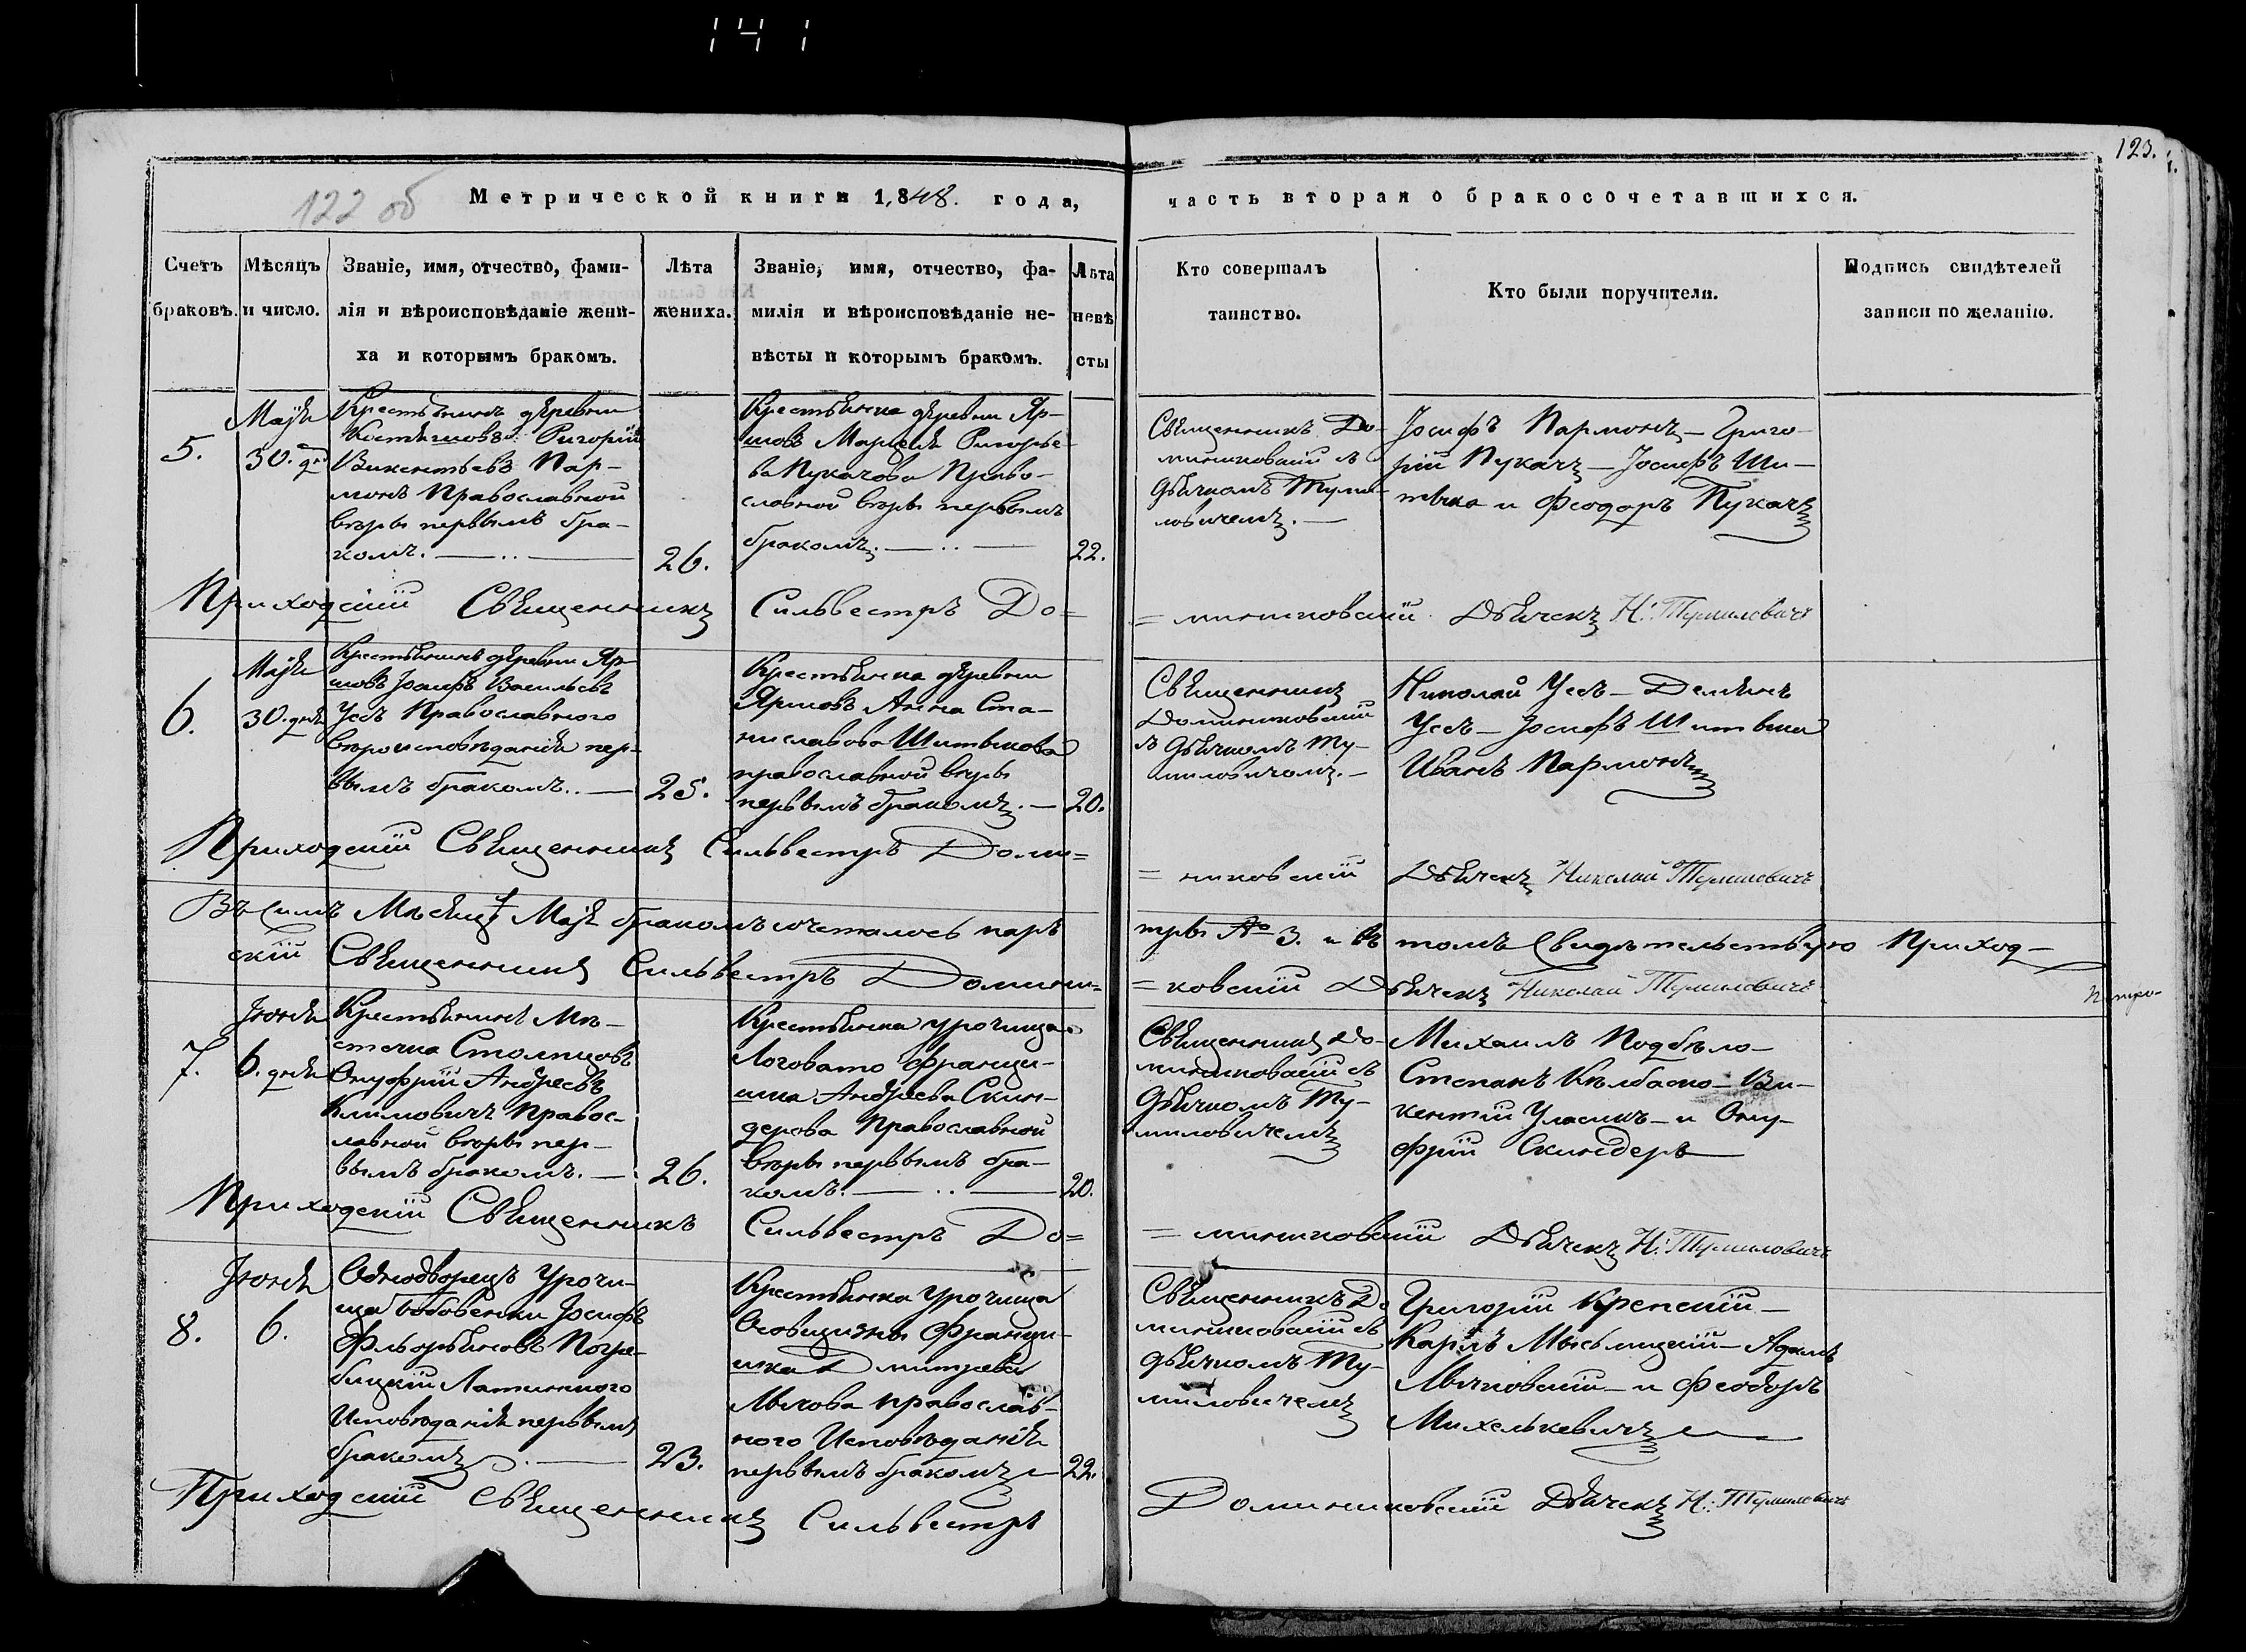 141
123.
122 об
Метрической книги 1,848. года,
часть вторая о бракосочетавшихся.
Счетъ браковъ.
Мѣсяцъ и число.
Званіе, имя, отчество, фами-
лія и вѣроисповѣданіе жени-
ха и которымъ бракомъ.
Лѣта
жениха.
Званіе, имя, отчество, фа-
милія и вѣроисповѣданіе не-
вѣсты и которымъ бракомъ.
Лѣта
невѣ
сты
Кто совершалъ
таинство.
Кто были поручители.
Подпись свидѣтелей
записи по желанію.
5.
Маія
30. дня
Крестьянинъ деревни
Ригорій
Викентьевъ Пар-
монъ Православной
вѣры первымъ бра-
комъ.
26.
Крестьянка деревни Яр-
шовъ Марцеля Ригорье-
ва Пукачова Право-
славной вѣры первымъ
бракомъ.
22.
Священникъ До-
миниковскій съ
Дьячкомъ Туми-
ловичемъ.
Іосифъ Пармонъ – Григо-
рій Пукачъ – Іосифъ Ши-
твка и Феодоръ Пукачъ
Приходскій Священникъ Сильвестръ До=
=миниковскій Дьячекъ Н: Тумиловичъ
6.
Маія
30. дня
Крестьянинъ деревни Яр-
шовъ Іосифъ Васильевъ
Усъ Православного
вѣроисповѣданія пер-
вымъ бракомъ..
25.
Крестьянка деревни
Яршовъ Анна Ста-
ниславова Шитвкова
православной вѣры
первымъ бракомъ.
20.
Священникъ
Доминиковскій
съ Дьячкомъ Ту-
миловичомъ.
Николай Усъ – Демянъ
Усъ – Іосифъ Шитвка
Иванъ Пармонъ
Приходскій Священникъ Сильвестръ Доми=
=никовскій Дьячекъ Николай Тумиловичъ
Въ семъ Мѣсяцѣ Маіи бракомъ сочеталось паръ
три No 3. и въ томъ Свидѣтельствую Приход-
скій Священникъ Сильвестръ Домини=
=ковскій Дьячекъ Николай Тумиловичъ
7.
Іюня
6. дня
Крестьянинъ Мѣ-
стечка Столпцовъ
Онуфрій Андреевъ
Климовичъ Правос-
лавной вѣры пер-
вымъ бракомъ.
26.
Крестьянка урочища
Логовато Франци-
шка Андреева Скин-
дерова Православной
вѣры первымъ бра-
комъ.
20.
Священникъ До-
миниковскій съ
Дьячкомъ Ту-
миловичемъ
Михаилъ Подбѣло-
Степанъ Кѣлбаско – Ви-
кентій Уласикъ – и Ону-
фрій Скиндеръ
Приходскій Священникъ Сильвестръ До=
=миниковскій Дьячекъ Н: Тумиловичъ
8.
Іюня
6.
Однодворецъ Урочи-
ща Іосифъ
Фльоріановъ Погре-
бицкій Латинского
Исповѣданія первымъ
бракомъ.
23.
Крестьянка Урочища
Францишка Дмитрева
Мычова православ-
ного Исповѣданія
первымъ бракомъ
22.
Священникъ До
миниковскій съ
дьячкомъ Ту-
миловичемъ
Григорій Крепскій –
Карлъ Мысьлицкій – Адамъ
Мячковскій – и Феодоръ
Михелькевичъ
Приходскій Священникъ Сильвестръ
Доминиковскій Дьячекъ Н: Тумиловичъ